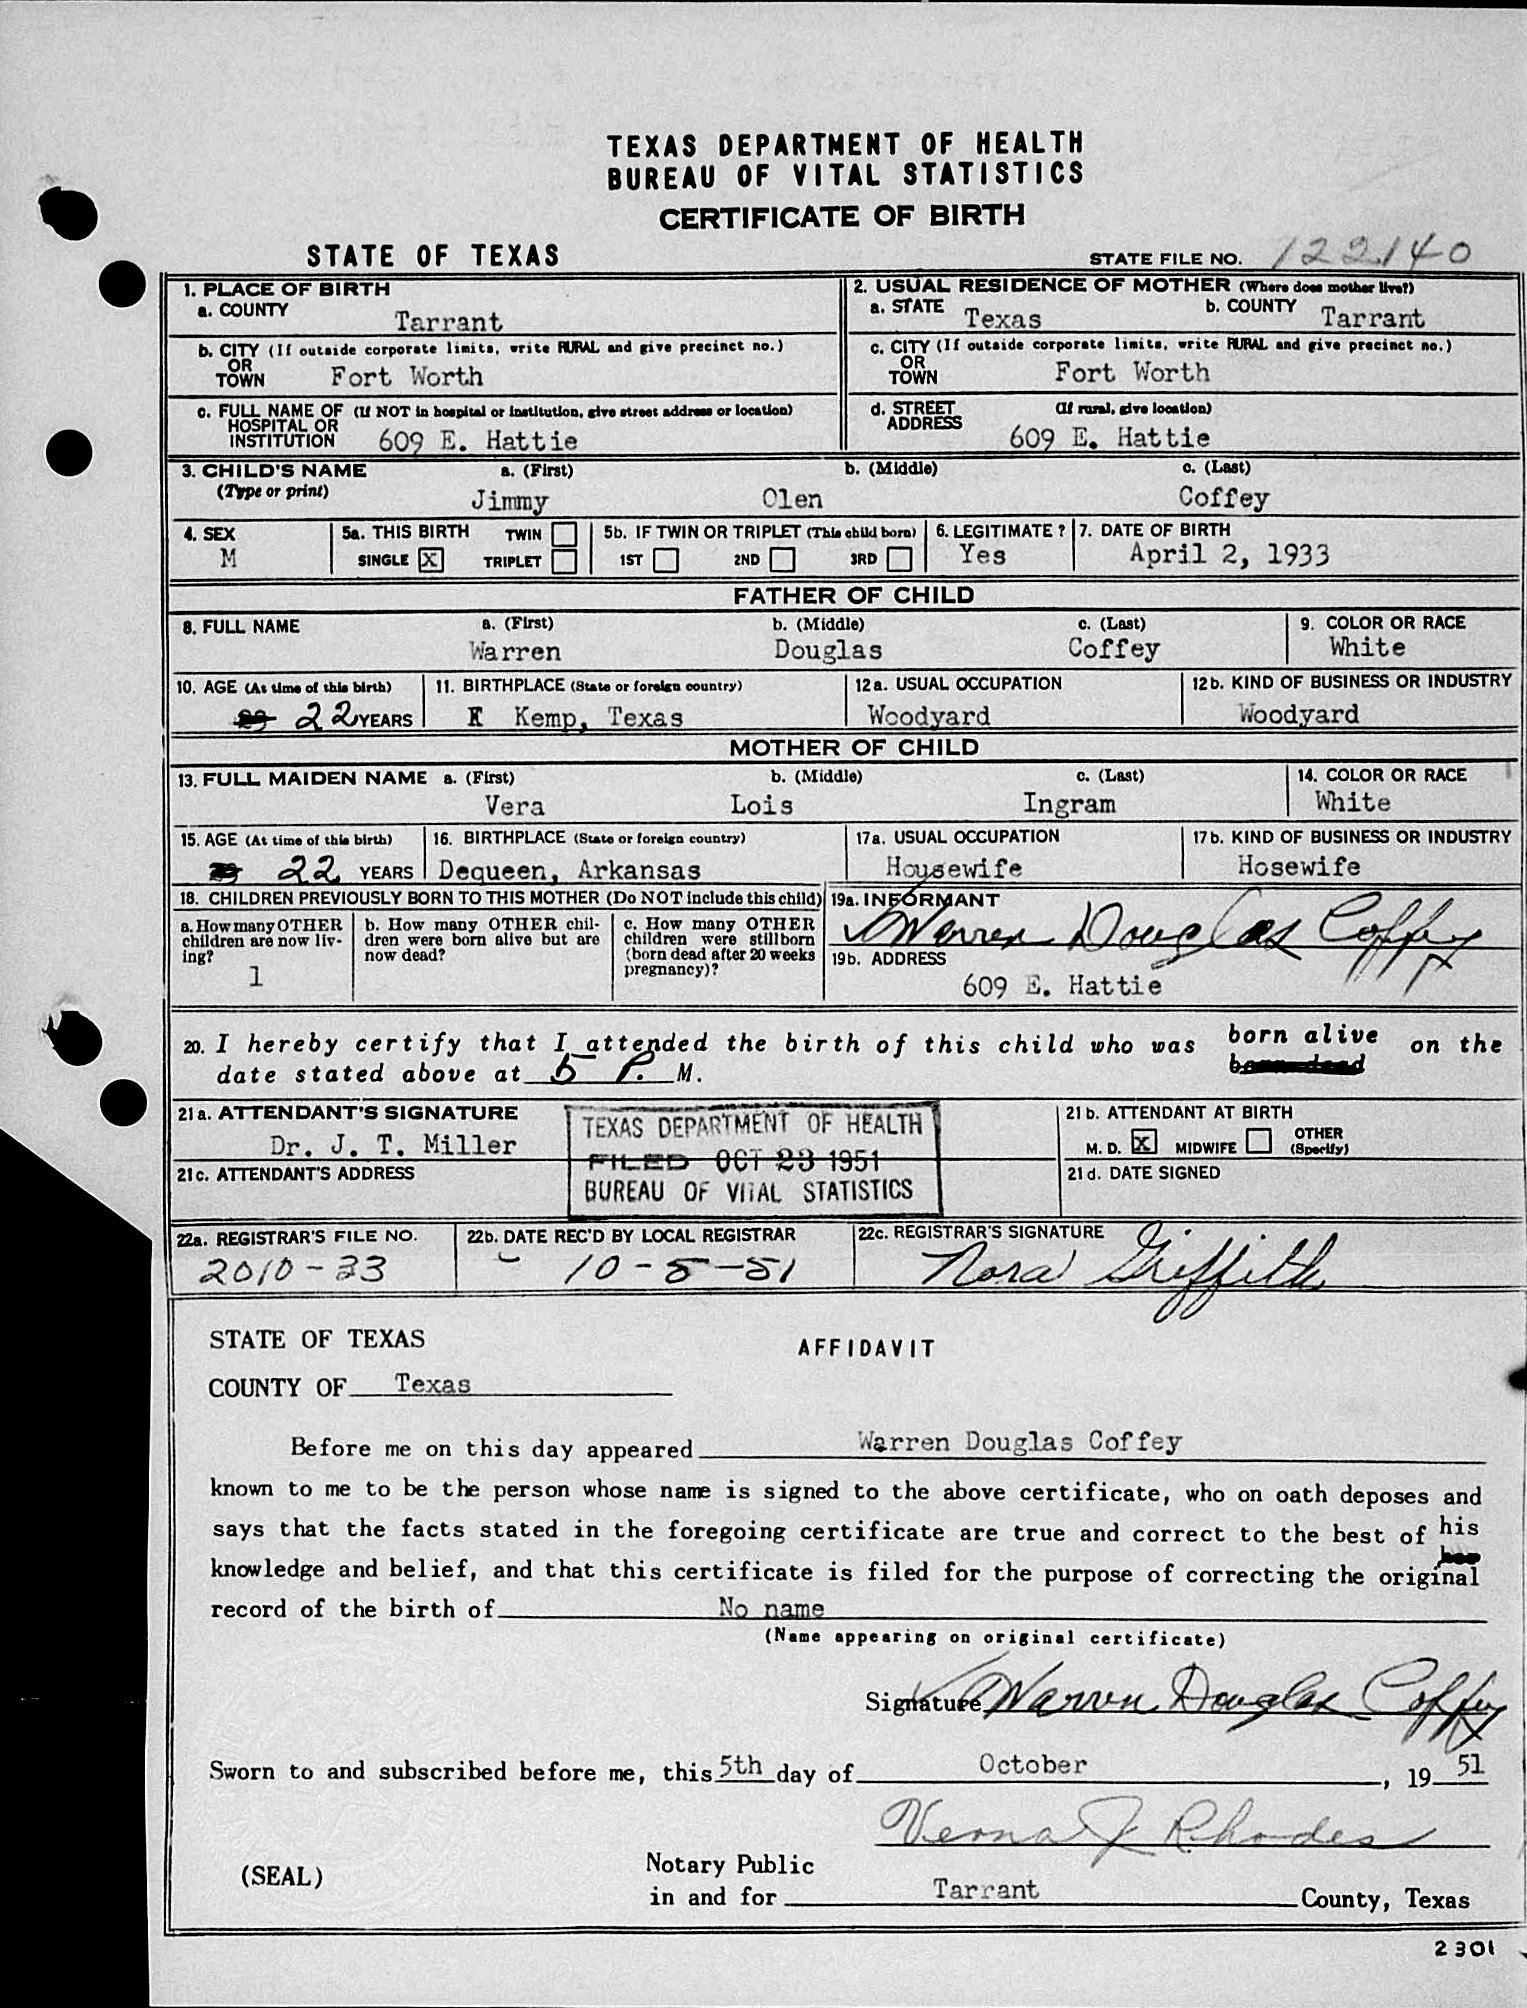 TEXAS DEPARTMENT OF HEALTH
BUREAU OF VITAL STATISTICS
CERTIFICATE OF BIRTH
STATE OF TEXAS
STATE FILE NO. 122140
1. PLACE OF BIRTH
a. COUNTY
Tarrant
2. USUAL RESIDENCE OF MOTHER (Where does mother live?)
a. STATE Texas b. COUNTY Tarrant
b. CITY (If outside corporate limits, write RURAL and give precinct no.)
OR
TOWN Fort Worth
c. CITY (If outside corporate limits, write RURAL and give precinct no.)
OR
TOWN Fort Worth
c. FULL NAME OF (If NOT in hospital or institution, give street address or location)
HOSPITAL OR
INSTITUTION 609 E. Hattie
d. STREET (If rural, give location)
ADDRESS
609 E. Hattie
3. CHILD'S NAME a. (First) b. (Middle) c. (Last)
(Type or print)
Jimmy Olen Coffey
4. SEX
M
5a. THIS BIRTH TWIN
SINGLE X TRIPLET
5b. IF TWIN OR TRIPLET (This child born)
1ST 2ND 3RD
6. LEGITIMATE ?
Yes
7. DATE OF BIRTH
April 2, 1933
FATHER OF CHILD
8. FULL NAME a. (First) b. (Middle) c. (Last)
Warren Douglas Coffey
9. COLOR OR RACE
White
10. AGE (At time of this birth)
22 YEARS
11. BIRTHPLACE (State or foreign country)
Kemp, Texas
12a. USUAL OCCUPATION
Woodyard
12b. KIND OF BUSINESS OR INDUSTRY
Woodyard
MOTHER OF CHILD
13. FULL MAIDEN NAME a. (First) b. (Middle) c. (Last)
Vera Lois Ingram
14. COLOR OR RACE
White
15. AGE (At time of this birth)
22 YEARS
16. BIRTHPLACE (State or foreign country)
Dequeen, Arkansas
17a. USUAL OCCUPATION
Housewife
17b. KIND OF BUSINESS OR INDUSTRY
Hosewife
18. CHILDREN PREVIOUSLY BORN TO THIS MOTHER (Do NOT include this child)
a. How many OTHER
children are now liv-
ing?
1
b. How many OTHER chil-
dren were born alive but are
now dead?
c. How many OTHER
children were stillborn
(born dead after 20 weeks
pregnancy)?
19a. INFORMANT
Warren Douglas Coffey
19b. ADDRESS
609 E. Hattie
20. I hereby certify that I attended the birth of this child who was born alive on the
born dead
date stated above at 5 P. M.
21a. ATTENDANT'S SIGNATURE
Dr. J. T. Miller
21c. ATTENDANT'S ADDRESS
TEXAS DEPARTMENT OF HEALTH
FILED OCT 23 1951
BUREAU OF VITAL STATISTICS
21b. ATTENDANT AT BIRTH
M. D. X MIDWIFE OTHER
(Specify)
21d. DATE SIGNED
22a. REGISTRAR'S FILE NO.
2010-33
22b. DATE REC'D BY LOCAL REGISTRAR
10-5-51
22c. REGISTRAR'S SIGNATURE
Nora Griffith
STATE OF TEXAS
AFFIDAVIT
COUNTY OF Texas
Before me on this day appeared Warren Douglas Coffey
known to me to be the person whose name is signed to the above certificate, who on oath deposes and
says that the facts stated in the foregoing certificate are true and correct to the best of his
her
knowledge and belief, and that this certificate is filed for the purpose of correcting the original
record of the birth of No name
(Name appearing on original certificate)
Signature Warren Douglas Coffey
Sworn to and subscribed before me, this 5th day of October, 19 51
Verna J Rhodes
(SEAL)
Notary Public
in and for Tarrant County, Texas
2301